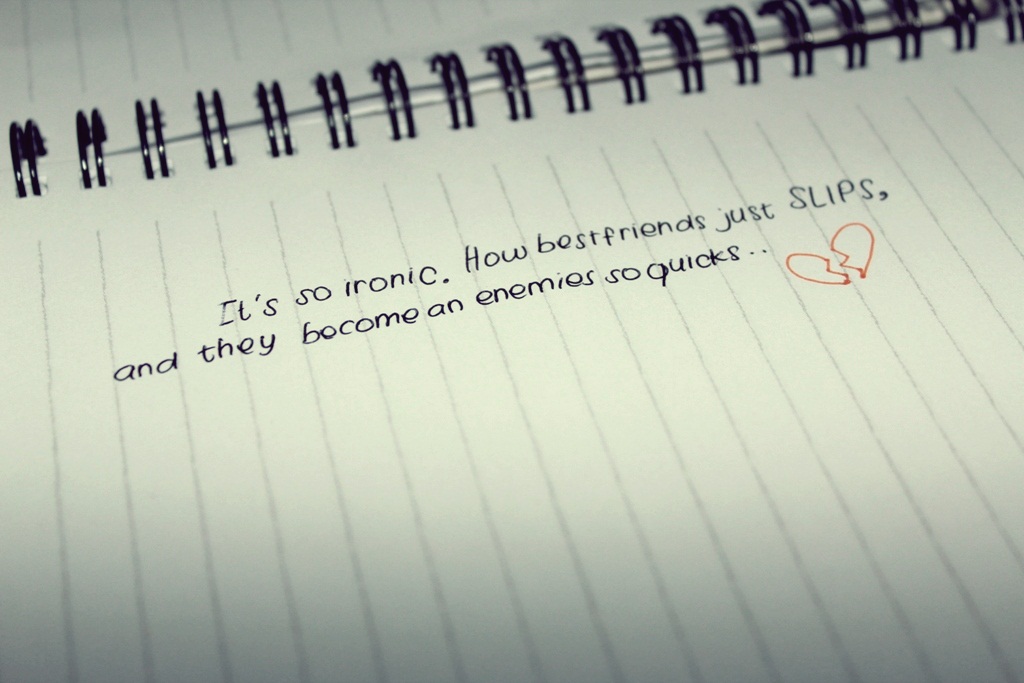 It's so ironic. How bestfriends just SLIPS,
and they become an enemies so quicks..